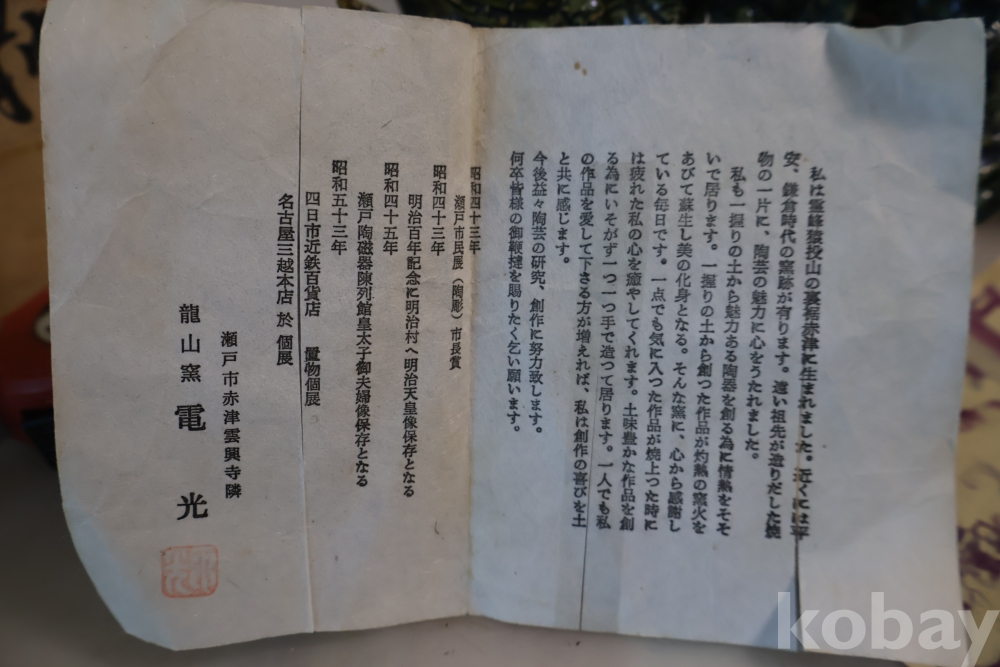 私は霊峰猿投山の裏裾赤津に生まれました。近くには平
安、鎌倉時代の窯跡が有ります。遠い祖先が造りだした焼
物の一片に、陶芸の魅力に心をうたれました。
私も一握りの土から魅力ある陶器を創る為に情熱をそそ
いで居ります。一握りの土から創つた作品が灼熱の窯火を
あびて蘇生し美の化身となる。そんな窯に、心から感謝し
ている毎日です。一点でも気に入つた作品が焼上つた時に
は疲れた私の心を癒やしてくれます。土味豊かな作品を創
る為にいそがず一つ一つ手で造つて居ります。一人でも私
の作品を愛して下さる方が増えれば、私は創作の喜びを土
と共に感じます。
今後益々陶芸の研究、創作に努力致します。
何卒皆様の御鞭撻を賜りたく乞い願います。
昭和四十三年
瀬戸市民展（陶彫）市長賞
昭和四十三年
明治百年記念に明治村へ明治天皇像保存となる
昭和四十五年
瀬戸陶磁器陳列館皇太子御夫婦像保存となる
昭和五十三年
四日市近鉄百貨店 置物個展
名古屋三越本店 於 個展
瀬戸市赤津雲興寺隣
龍山窯 電光
kobay